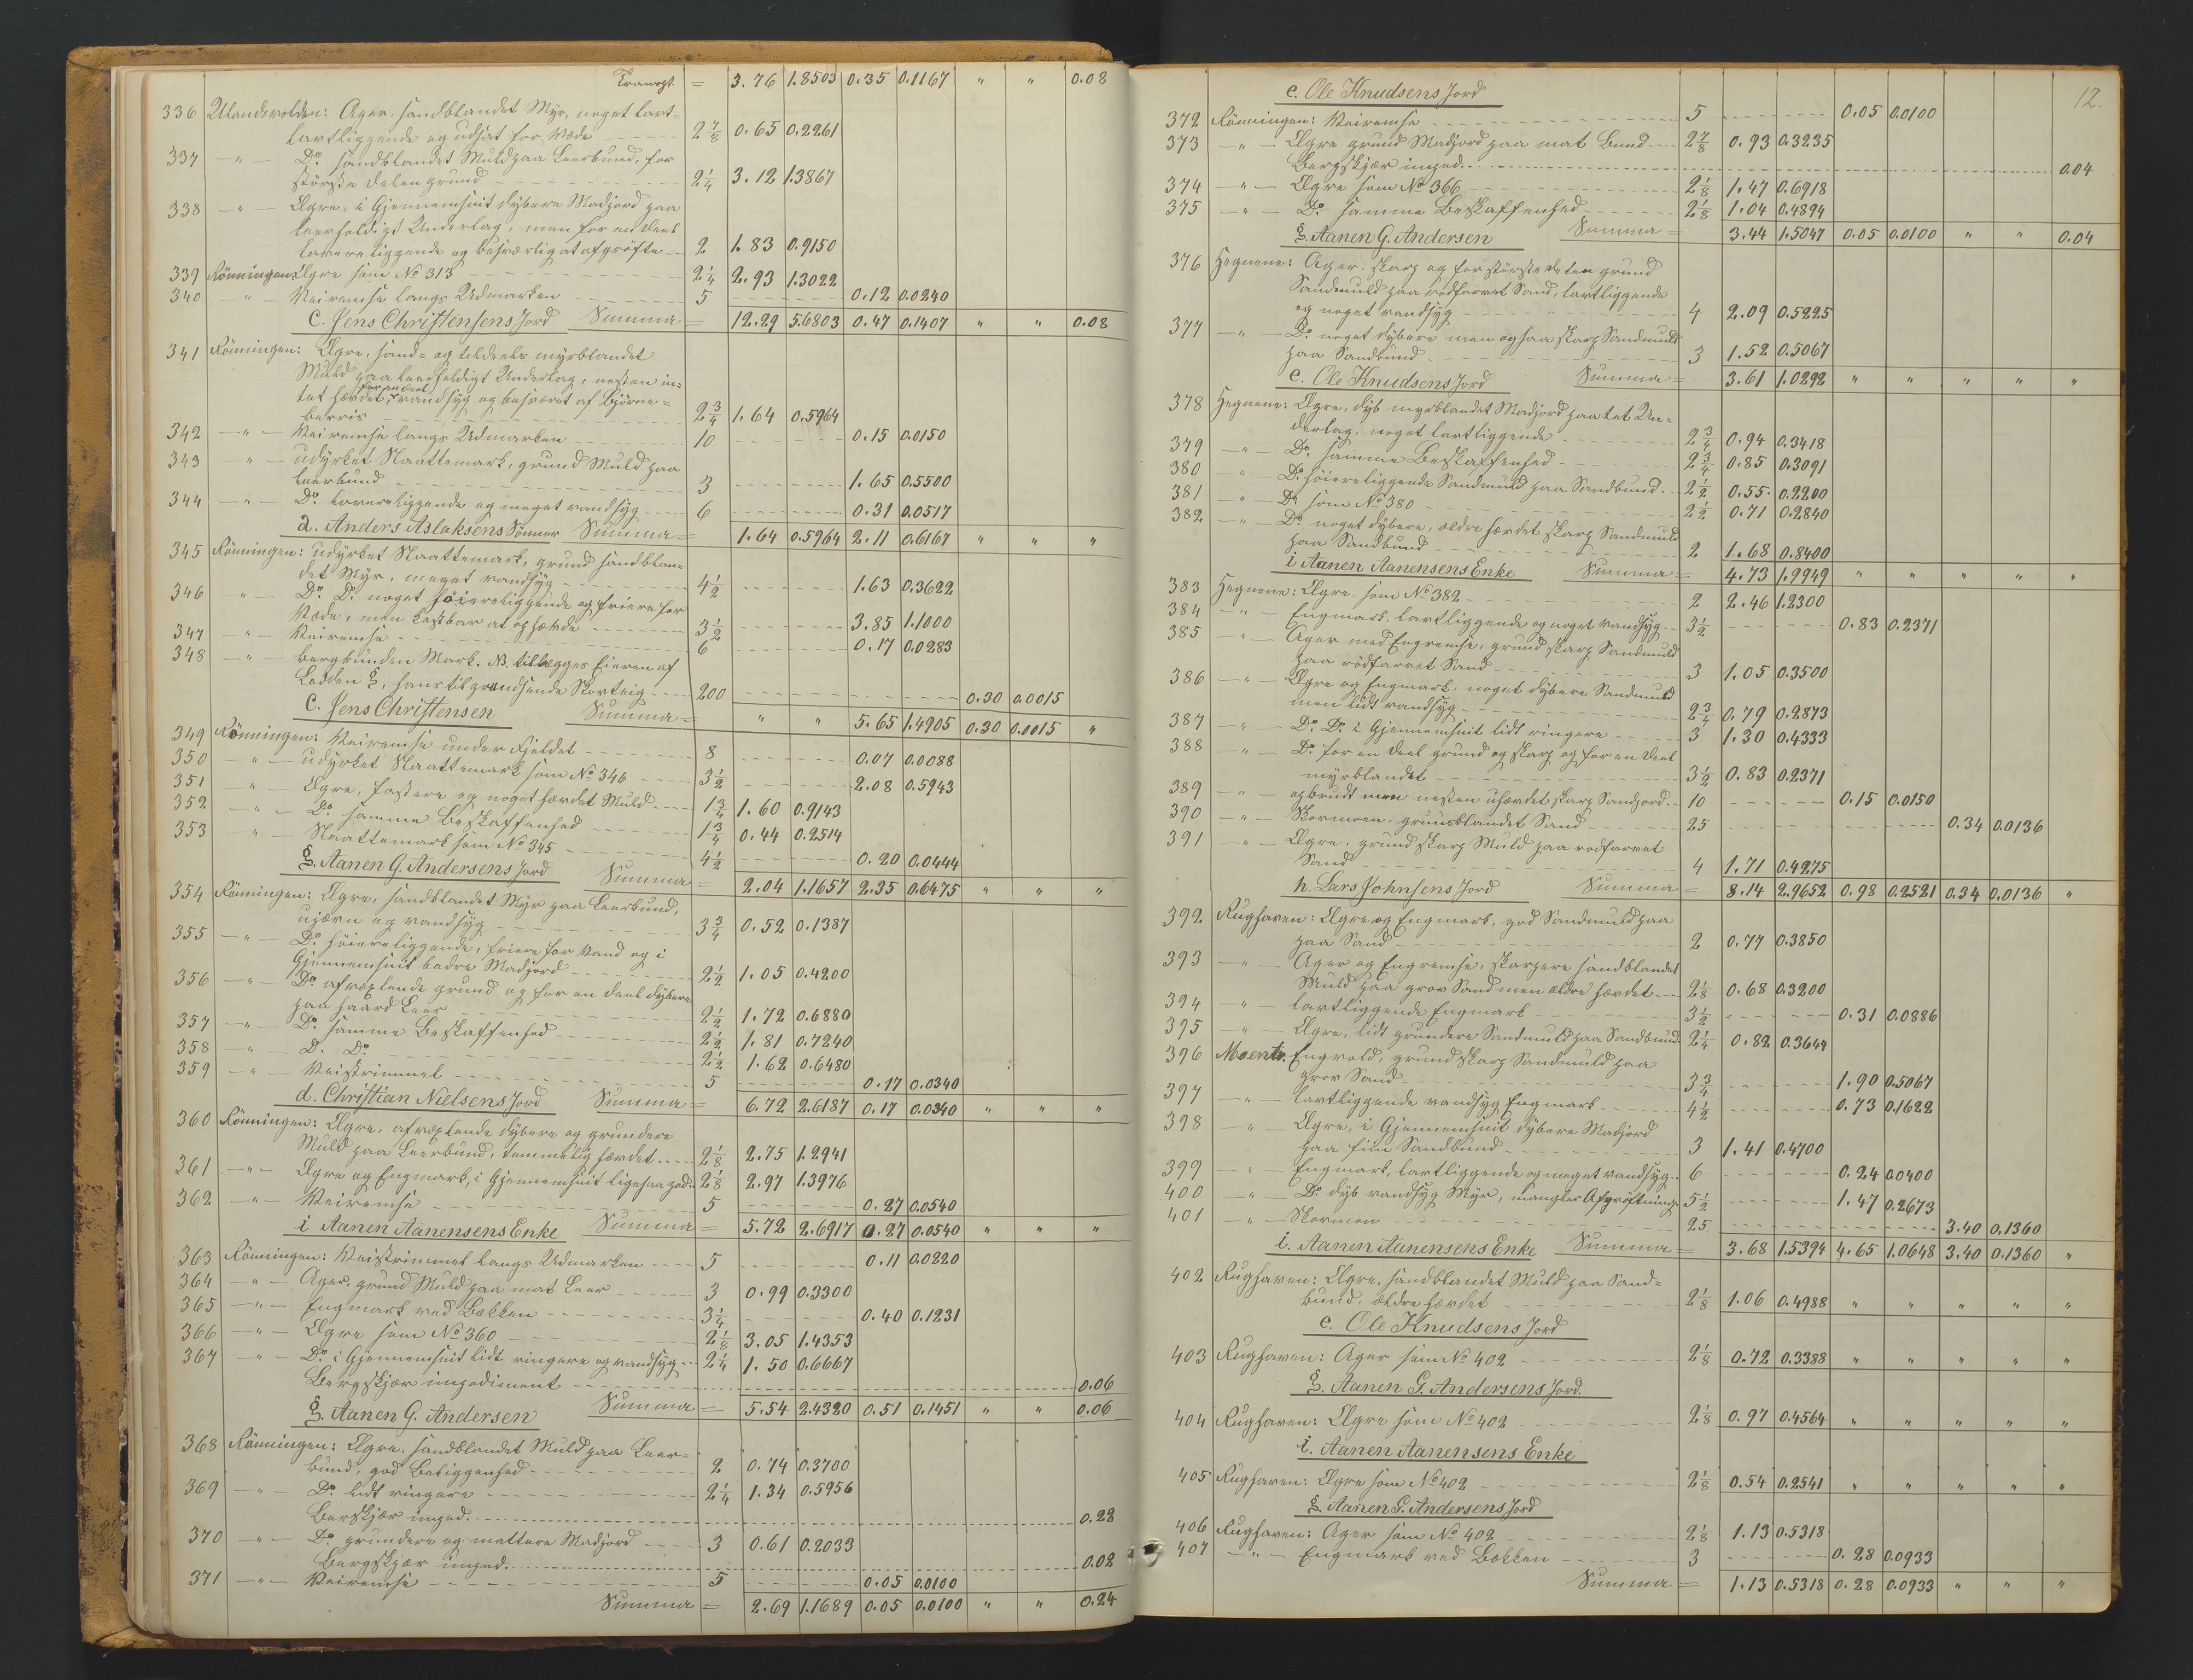 Transpt. = 3.76 1.8503 0.35 0.1167 " " 0.08
336 Ulandsvolden: Ager, sandblandet Myr, noget lavt-
lavtliggende og udsat for Væde 2 7/8 0.65 0.2261
337 — " — Do sandblandet Muld paa Leerbund, for
største Delen grund 2 1/4 3.12 1.3867
338 — " — Agre, i Gjennemsnit dybere Madjord paa
leerholdigt Underlag, men for en Deel
lavereliggende og besværlig at afgrøfte 2 1.83 0.9150
339 Rönningen: Agre som No 313 2 1/4 2.93 1.3022
340 — " — Veiremse langs Udmarken 5 0.12 0.0240
C. Jens Christensens Jord Summa = 12.29 5.6803 0.47 0.1407 " " 0.08
341 Rönningen: Agre, sand- og tildeels myrblandet
Muld paa leerholdigt Underlag, næsten in-
for en Deel
tet hævdet, vandsyg og besværet af Bjørne-
berris 2 3/4 1.64 0.5964
342 — " — Veiremse langs Udmarken 10 0.15 0.0150
343 — " — udyrket Slaattemark, grund Muld paa
Leerbund 3 1.65 0.5500
344 — " — Do lavereliggende og meget vandsyg 6 0.31 0.0517
a. Anders Aslaksens Sönner Summa = 1.64 0.5964 2.11 0.6167 " " "
345 Rönningen: udyrket Slaattemark, grund sandblan-
det Myr, meget vandsyg 4 1/2 1.63 0.3622
346 — " — Do Do noget høiereliggende og friere for
Væde, men kostbar at ophævde 3 1/2 3.85 1.1000
347 — " — Veiremse 6 0.17 0.0283
348 — " — Bergbunden Mark. NB. tillægges Eieren af
Lodden g, hans tilgrændsende Skovteig 200 0.30 0.0015
C. Jens Christensen Summa = " " 5.65 1.4905 0.30 0.0015 "
349 Rönningen: Veiremse under Fjeldet 8 0.07 0.0088
350 — " — udyrket Slaattemark som No 346 3 1/2 2.08 0.5943
351 " Agre, fastere og noget hævdet Muld 1 3/4 1.60 0.9143
352 — " — Do samme Beskaffenhed 1 3/4 0.44 0.2514
353 " Slaattemark som No 345 4 1/2 0.20 0.0444
g. Aanen G. Andersens Jord Summa = 2.04 1.1657 2.35 0.6475 " " "
354 Rönningen: Agre, sandblandet Myr paa Leerbund,
ujævn og vandsyg 3 3/4 0.52 0.1387
355 — " — Do høiereliggende, friere for Vand og i
Gjennemsnit bedre Madjord 2 1/2 1.05 0.4200
356 — " — Do afvexlende grund og for en deel dybere
paa haard Leer 2 1/2 1.72 0.6880
357 — " — Do samme Beskaffenhed 2 1/2 1.81 0.7240
358 — " D. Do 2 1/2 1.62 0.6480
359 — " — Veistrimmel 5 0.17 0.0340
d. Christian Nielsens Jord Summa = 6.72 2.6187 0.17 0.0340 " " "
360 Rönningen: Agre, afvexlende dybere og grundere
Muld paa Leerbund, temmelig hævdet 2 1/8 2.75 1.2941
361 — " — Agre og Engmark, i Gjennemsnit ligesaa god 2 1/8 2.97 1.3976
362 — " — Veiremse 5 0.27 0.0540
i Aanen Aanensens Enke Summa = 5.72 2.6917 0.27 0.0540 " " "
363 Rönningen: Veistrimmel langs Udmarken 5 0.11 0.0220
364 — " — Ager, grund Muld paa mat Leer 3 0.99 0.3300
365 — " — Engmark ved Bækken 3 1/4 0.40 0.1231
366 — " — Agre som No 360 2 1/8 3.05 1.4353
367 — " — Do i Gjennemsnit lidt ringere og vandsyg 2 1/4 1.50 0.6667
Bergskjær impediment 0.06
g. Aanen G. Andersen Summa = 5.54 2.4320 0.51 0.1451 " " 0.06
368 Rönningen: Agre, sandblandet Muld paa Leer-
bund, god Beliggenhed 2 0.74 0.3700
369 — " — Do lidt ringere 2 1/4 1.34 0.5956
Berskjær imped. 0.22
370 — " — Do grundere og mattere Madjord 3 0.61 0.2033
Bergskjær imped. 0.02
371 — " — Veiremse 5 0.05 0.0100
Summa = 2.69 1.1689 0.05 0.0100 " " 0.24
12.
e. Ole Knudsens Jord
372 Rönningen: Veiremse 5 0.05 0.0100
373 — " — Agre grund Madjord paa mat Bund 2 7/8 0.93 0.3235
Bergskjær imped. 0.04
374 — " — Agre som No 366 2 1/8 1.47 0.6918
375 — " — Do samme Beskaffenhed 2 1/8 1.04 0.4894
g. Aanen G. Andersen Summa = 3.44 1.5047 0.05 0.0100 " " 0.04
376 Hegnene: Ager, skarp og for største Delen grund
Sandmuld paa rødfarvet Sand, lavtliggende
og noget vandsyg 4 2.09 0.5225
377 — " — Do noget dybere men ogsaa skarp Sandmuld
paa Sandbund 3 1.52 0.5067
e. Ole Knudsens Jord Summa = 3.61 1.0292 " " " " "
378 Hegnene: Agre, dyb myrblandet Madjord paa tet Un-
derlag, noget lavtliggende 2 3/4 0.94 0.3418
379 — " — Do samme Beskaffenhed 2 3/4 0.85 0.3091
380 " Do høiereliggende Sandmuld paa Sandbund 2 1/2 0.55 0.2200
381 — " — Do som No 380 2 1/2 0.71 0.2840
382 — " — Do noget dybere, ældre hævdet skarp Sandmuld
paa Sandbund 2 1.68 0.8400
i Aanen Aanensens Enke Summa = 4.73 1.9949 " " " " "
383 Hegnene: Agre, som No 382 2 2.46 1.2300
384 — " — Engmark, lavtliggende og noget vandsyg 3 1/2 0.83 0.2371
385 — " — Ager med Engremse, grund skarp Sandmuld
paa rödfarvet Sand 3 1.05 0.3500
386 — " — Agre og Engmark, noget dybere Sandmuld
men lidt vandsyg 2 3/4 0.79 0.2873
387 — " — Do Do i Gjennemsnit lidt ringere 3 1.30 0.4333
388 " Do for en Deel grund og skarp og for en Deel
myrblandet 3 1/2 0.83 0.2371
389 — " — opbrudt men næsten uhævdet skarp Sandjord 10 0.15 0.0150
390 — " — Skovmoen, gruusblandet Sand 25 0.34 0.0136
391 — " — Agre, grund skarp Muld paa rødfarvet
Sand 4 1.71 0.4275
h. Lars Johnsens Jord Summa = 8.14 2.9652 0.98 0.2521 0.34 0.0136 "
392 Rughaven: Agre og Engmark, god Sandmuld paa
paa Sand 2 0.77 0.3850
393 — " — Ager og Engremse, skarpere sandblandet
Muld paa grov Sand men ældre hævdet 2 1/8 0.68 0.3200
394 — " — lavtliggende Engmark 3 1/2 0.31 0.0886
395 — " — Agre, lidt grundere Sandmuld paa Sandbund 2 1/4 0.82 0.3644
396 Moente. Engvold, grund skarp Sandmuld paa
grov Sand 3 3/4 1.90 0.5067
397 — " — lavtliggende vandsyg Engmark 4 1/2 0.73 0.1622
398 — " — Agre, i Gjennemsnit dybere Madjord
paa fiin Sandbund 3 1.41 0.4700
399 — " — Engmark, lavtliggende og meget vandsyg 6 0.24 0.0400
400 — " — Do dyb vandsyg Myr, mangler Afgrøftning 5 1/2 1.47 0.2673
401 — " — Skovmoen 25 3.40 0.1360
i. Aanen Aanensens Enke Summa = 3.68 1.5394 4.65 1.0648 3.40 0.1360 "
402 Rughaven: Agre, sandblandet Muld paa Sand-
bund, ældre hævdet 2 1/8 1.06 0.4988 " " " " "
e. Ole Knudsens Jord
403 Rughaven: Ager som No 402 2 1/8 0.72 0.3388 " " " " "
g. Aanen G. Andersens Jord.
404 Rughaven: Agre som No 402 2 1/8 0.97 0.4564 " " " " "
i. Aanen Aanensens Enke
405 Rughaven: Agre som No 402 2 1/8 0.54 0.2541 " " " " "
g. Aanen G. Andersens Jord
406 Rughaven: Ager som No 402 2 1/8 1.13 0.5318
407 — " — Engmark ved Bækken 3 0.28 0.0933
Summa = 1.13 0.5318 0.28 0.0933 " " "